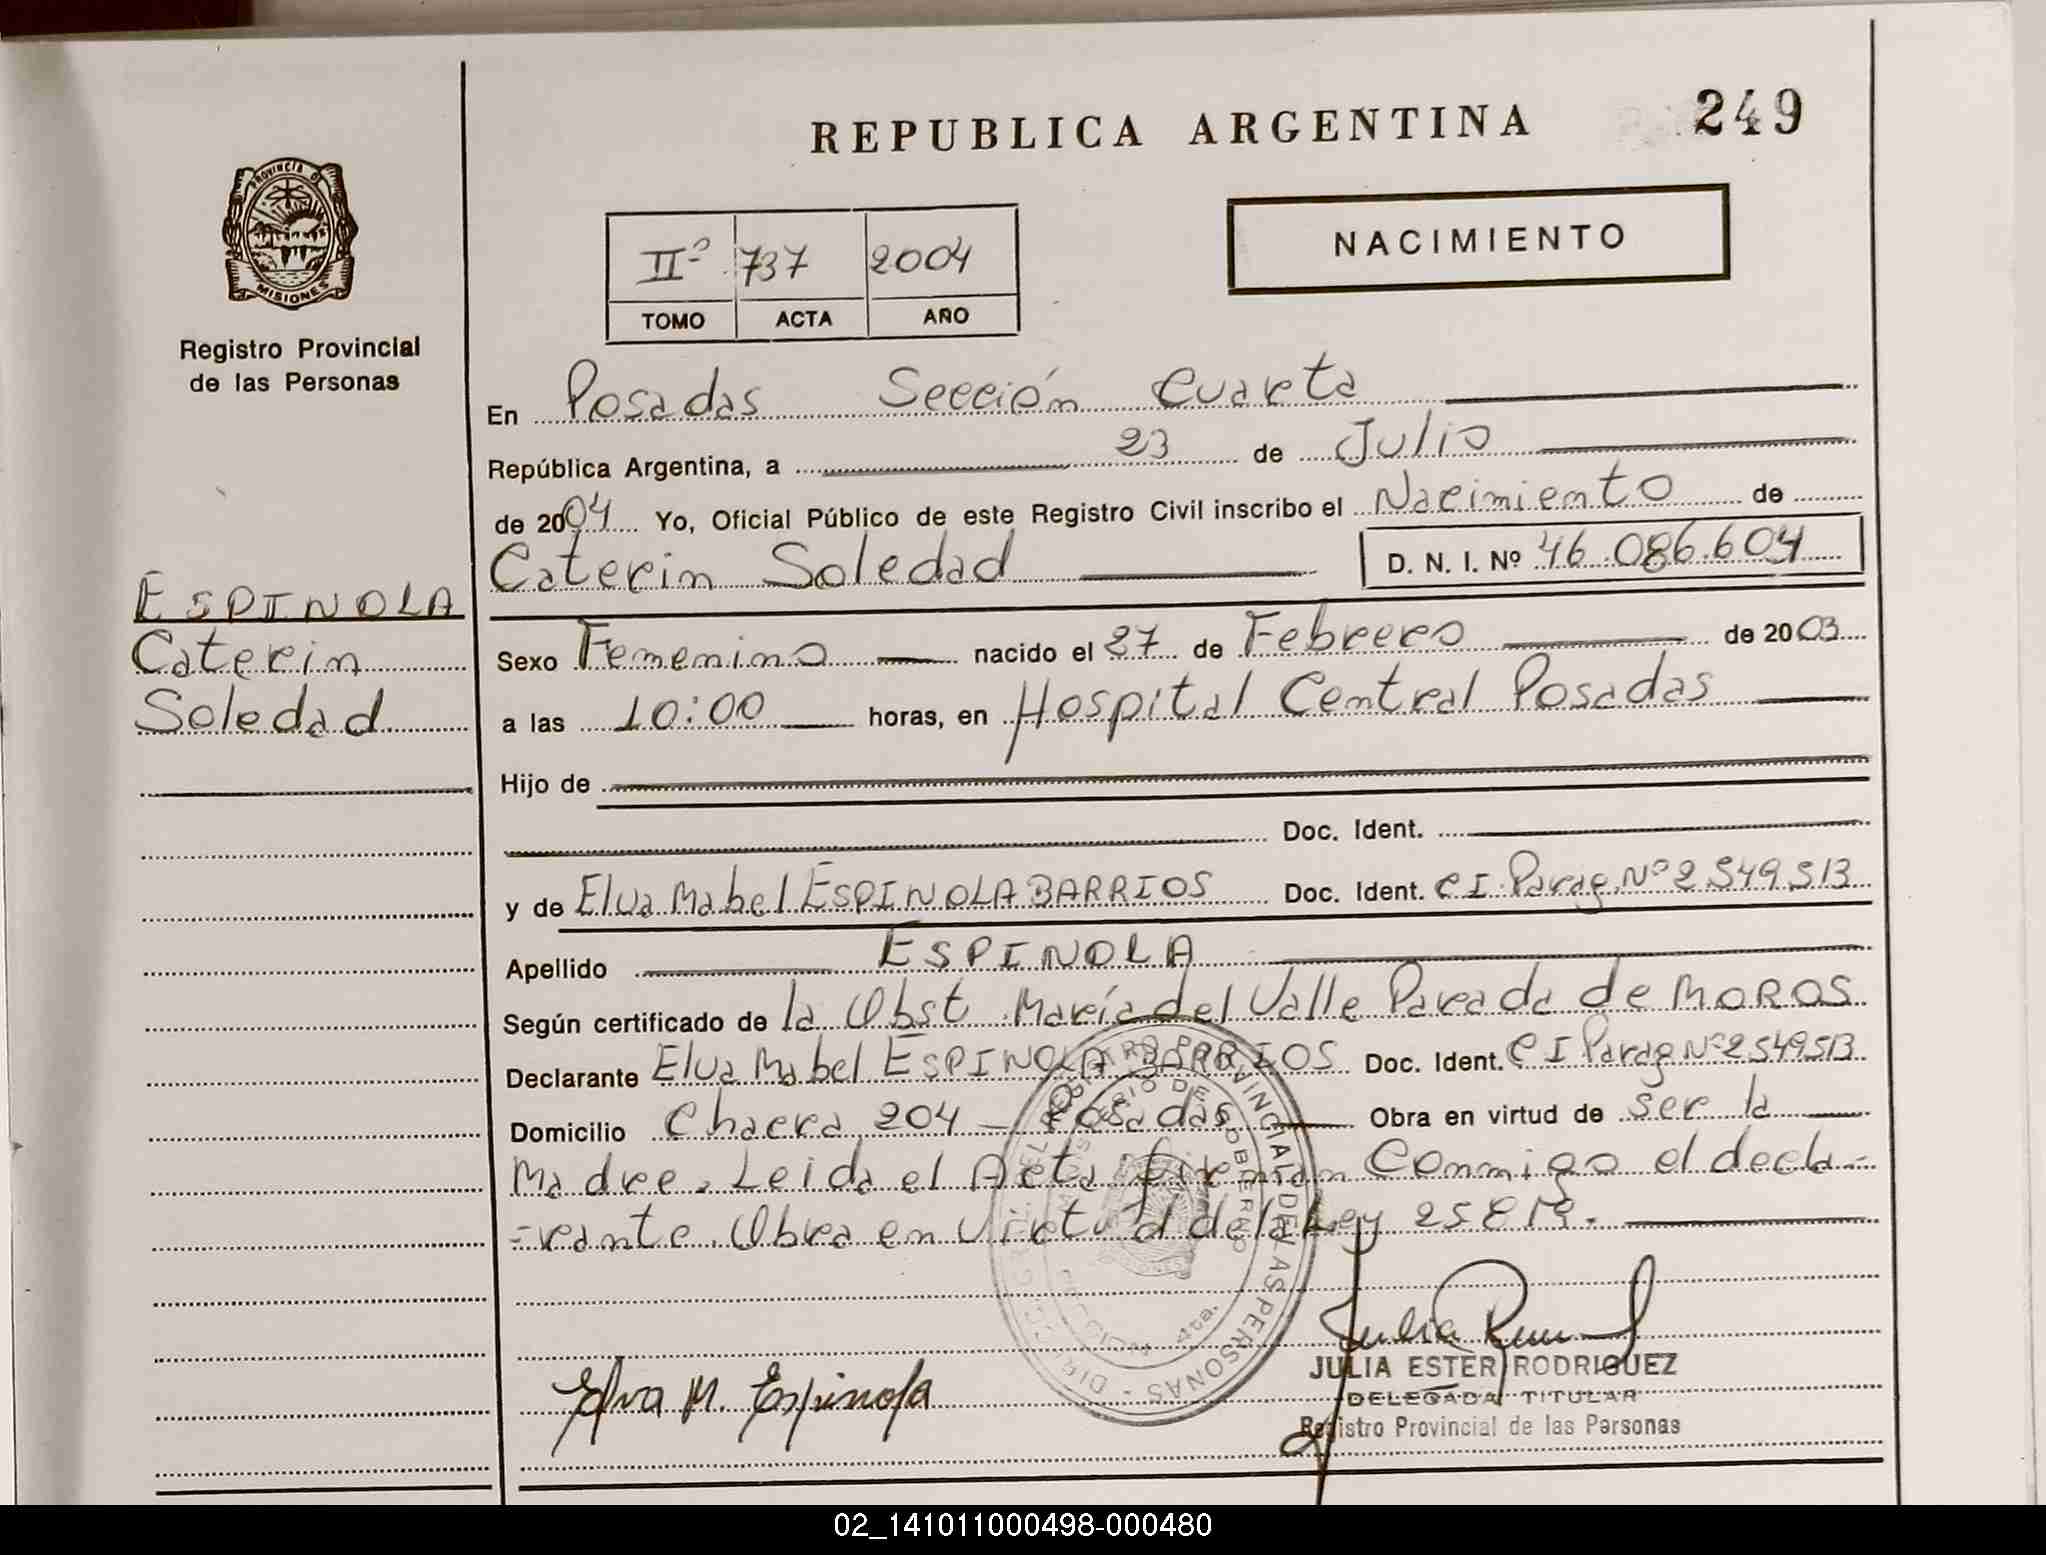 REPUBLICA ARGENTINA
249
PROVINCIA DE
MISIONES
Registro Provincial
de las Personas
IIº 737 2004
TOMO ACTA AÑO
NACIMIENTO
En Posadas Sección Cuarta
República Argentina, a 23 de Julio
de 2004 Yo, Oficial Público de este Registro Civil inscribo el Nacimiento de
Caterin Soledad D. N. I. Nº 46.086.604
ESPINOLA
Caterin
Soledad
Sexo Femenino nacido el 27 de Febrero de 2003
a las 10:00 horas, en Hospital Central Posadas
Hijo de
Doc. Ident.
y de Elva Mabel ESPINOLA BARRIOS Doc. Ident. CI. Parag. Nº 2549513
Apellido ESPINOLA
Según certificado de la Obst. María del Valle Parada de MOROS
Declarante Elva Mabel ESPINOLA BARRIOS Doc. Ident. CI Parag Nº 2549513
Domicilio Chacra 204 - Posadas Obra en virtud de ser la
Madre. Leida el Acta firman Conmigo el decla=
=rante. Obra en Virtud de la Ley 25819.
REGISTRO PROVINCIAL DE LAS PERSONAS
MINISTERIO DE GOBIERNO
MISIONES
SECCION 4ta.
Elva M. Espinola
JULIA ESTER RODRIGUEZ
DELEGADA TITULAR
Registro Provincial de las Personas
02_141011000498-000480